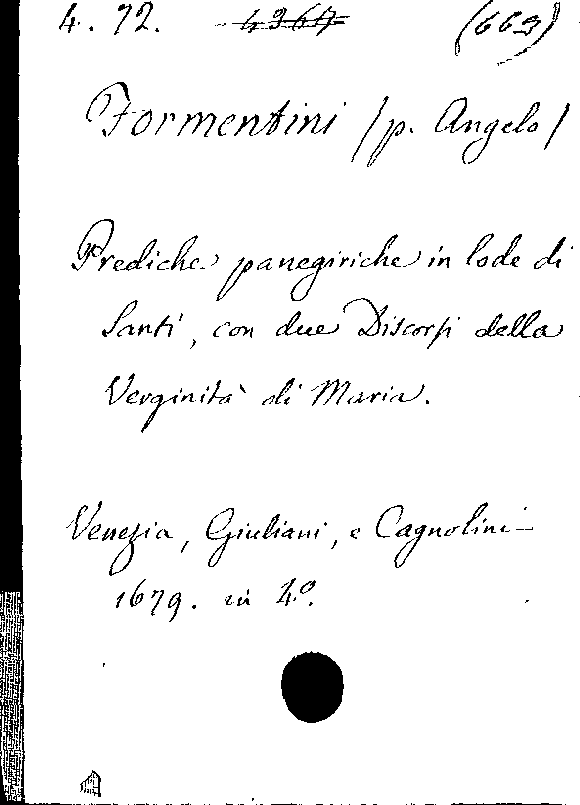 4. 72. 4367 (663)
Formentini /p. Angelo/
Prediche panegiriche in lode di
Santi, con due Discorsi della
Verginità di Maria.
Venezia, Giuliani, e Cagnolini
1679. in 4º.